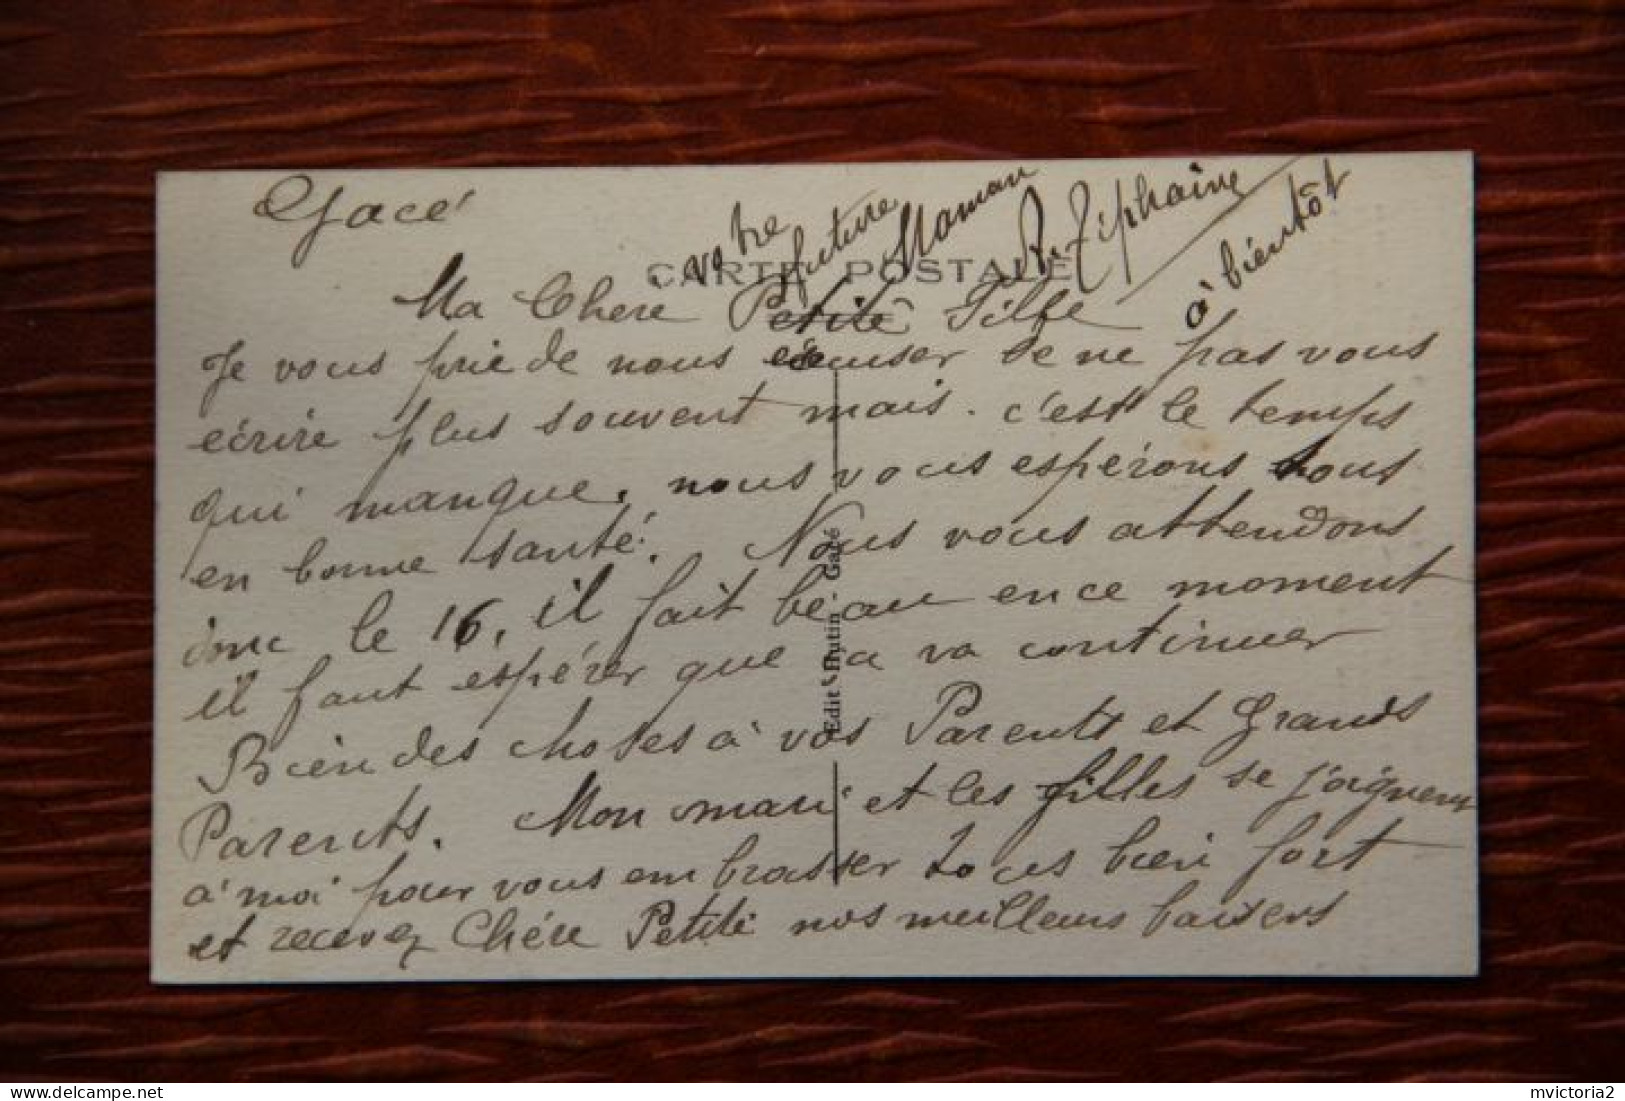 Gacé
CARTE POSTALE
Ma Chere Petite Fille
Je vous prie de nous excuser de ne pas vous
écrire plus souvent mais. c'est le temps
qui manque. nous vous espérons tous
en bonne santé. Nous vous attendons
donc le 16, il fait beau en ce moment
il faut espérer que ça va continuer
Bien des choses à vos Parents et Grands
Parents. Mon mari et les filles se joignent
à moi pour vous embrasser tous bien fort
et recevez Chére Petite nos meilleurs baisers
votre future Maman
R. Tiphaine
à bientôt
Edit. Hutin - Gacé
mvictoria2
delcampe.net